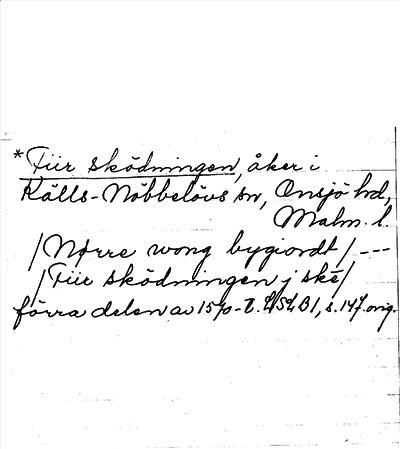 *Fiir sködningen, åker i
Källs-Nöbbelövs sn, Onsjö hd,
Malm. l.
/Nørre wong bygiordt/ ---
/Fiir sködningen j ské/
förra delen av 1570-t. LSLB1, s. 147. orig.